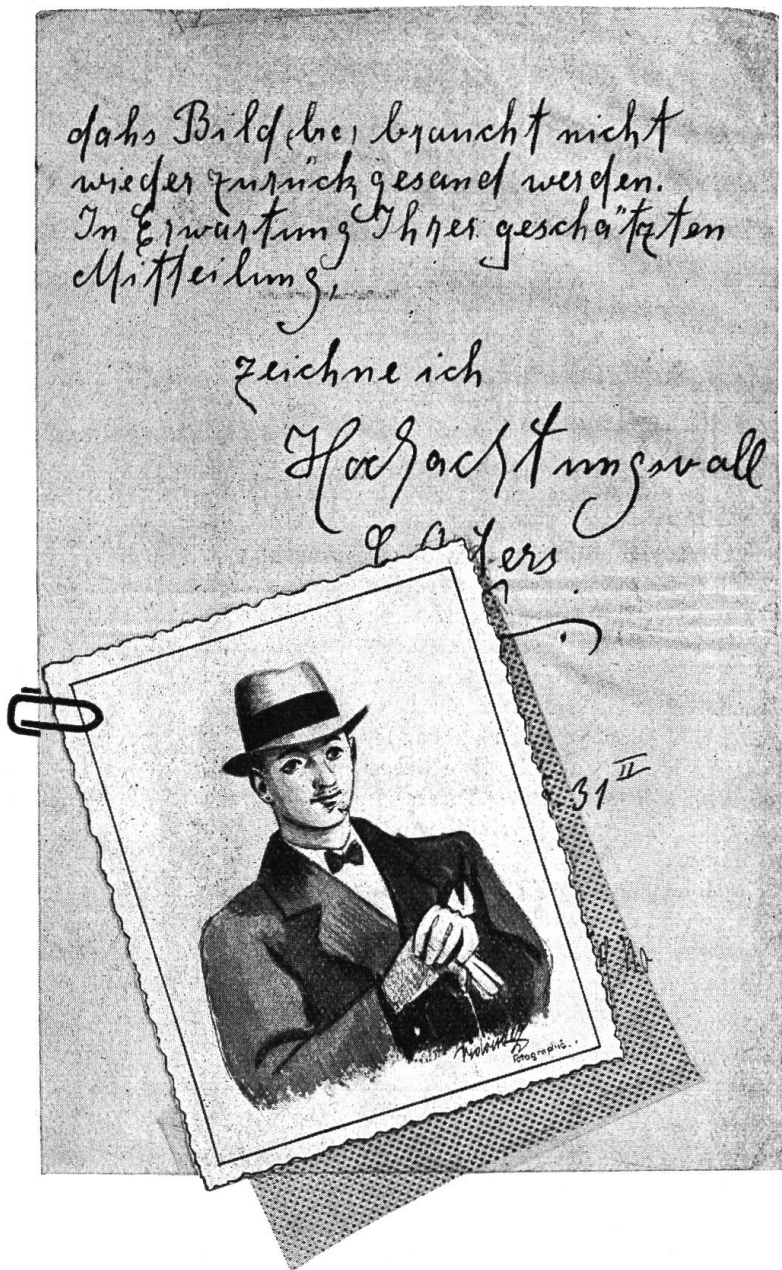 dahs Bild, bei braucht nicht
wieder zurück gesand werden.
In Erwartung Ihrer geschätzten
Mitteilung,
zeichne ich
Hochachtungsvall
31 II
Fotographie..